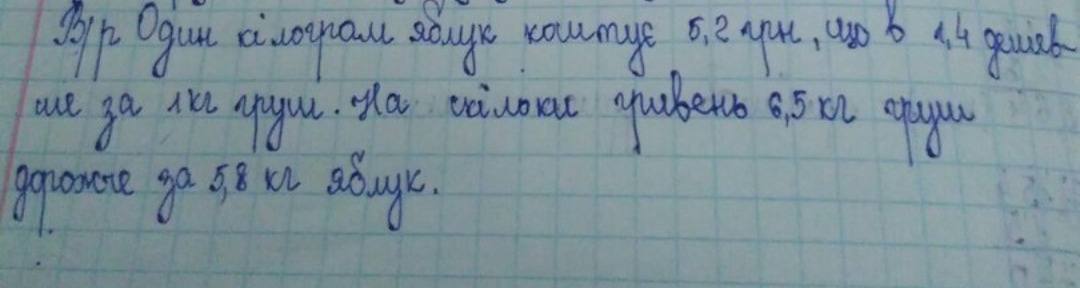 В/р Один кілограм яблук коштує 5,2 грн, що в 1,4 дешев-
ше за 1 кг груш. На скільки гривень 6,5 кг груш
дорожче за 5,8 кг яблук.